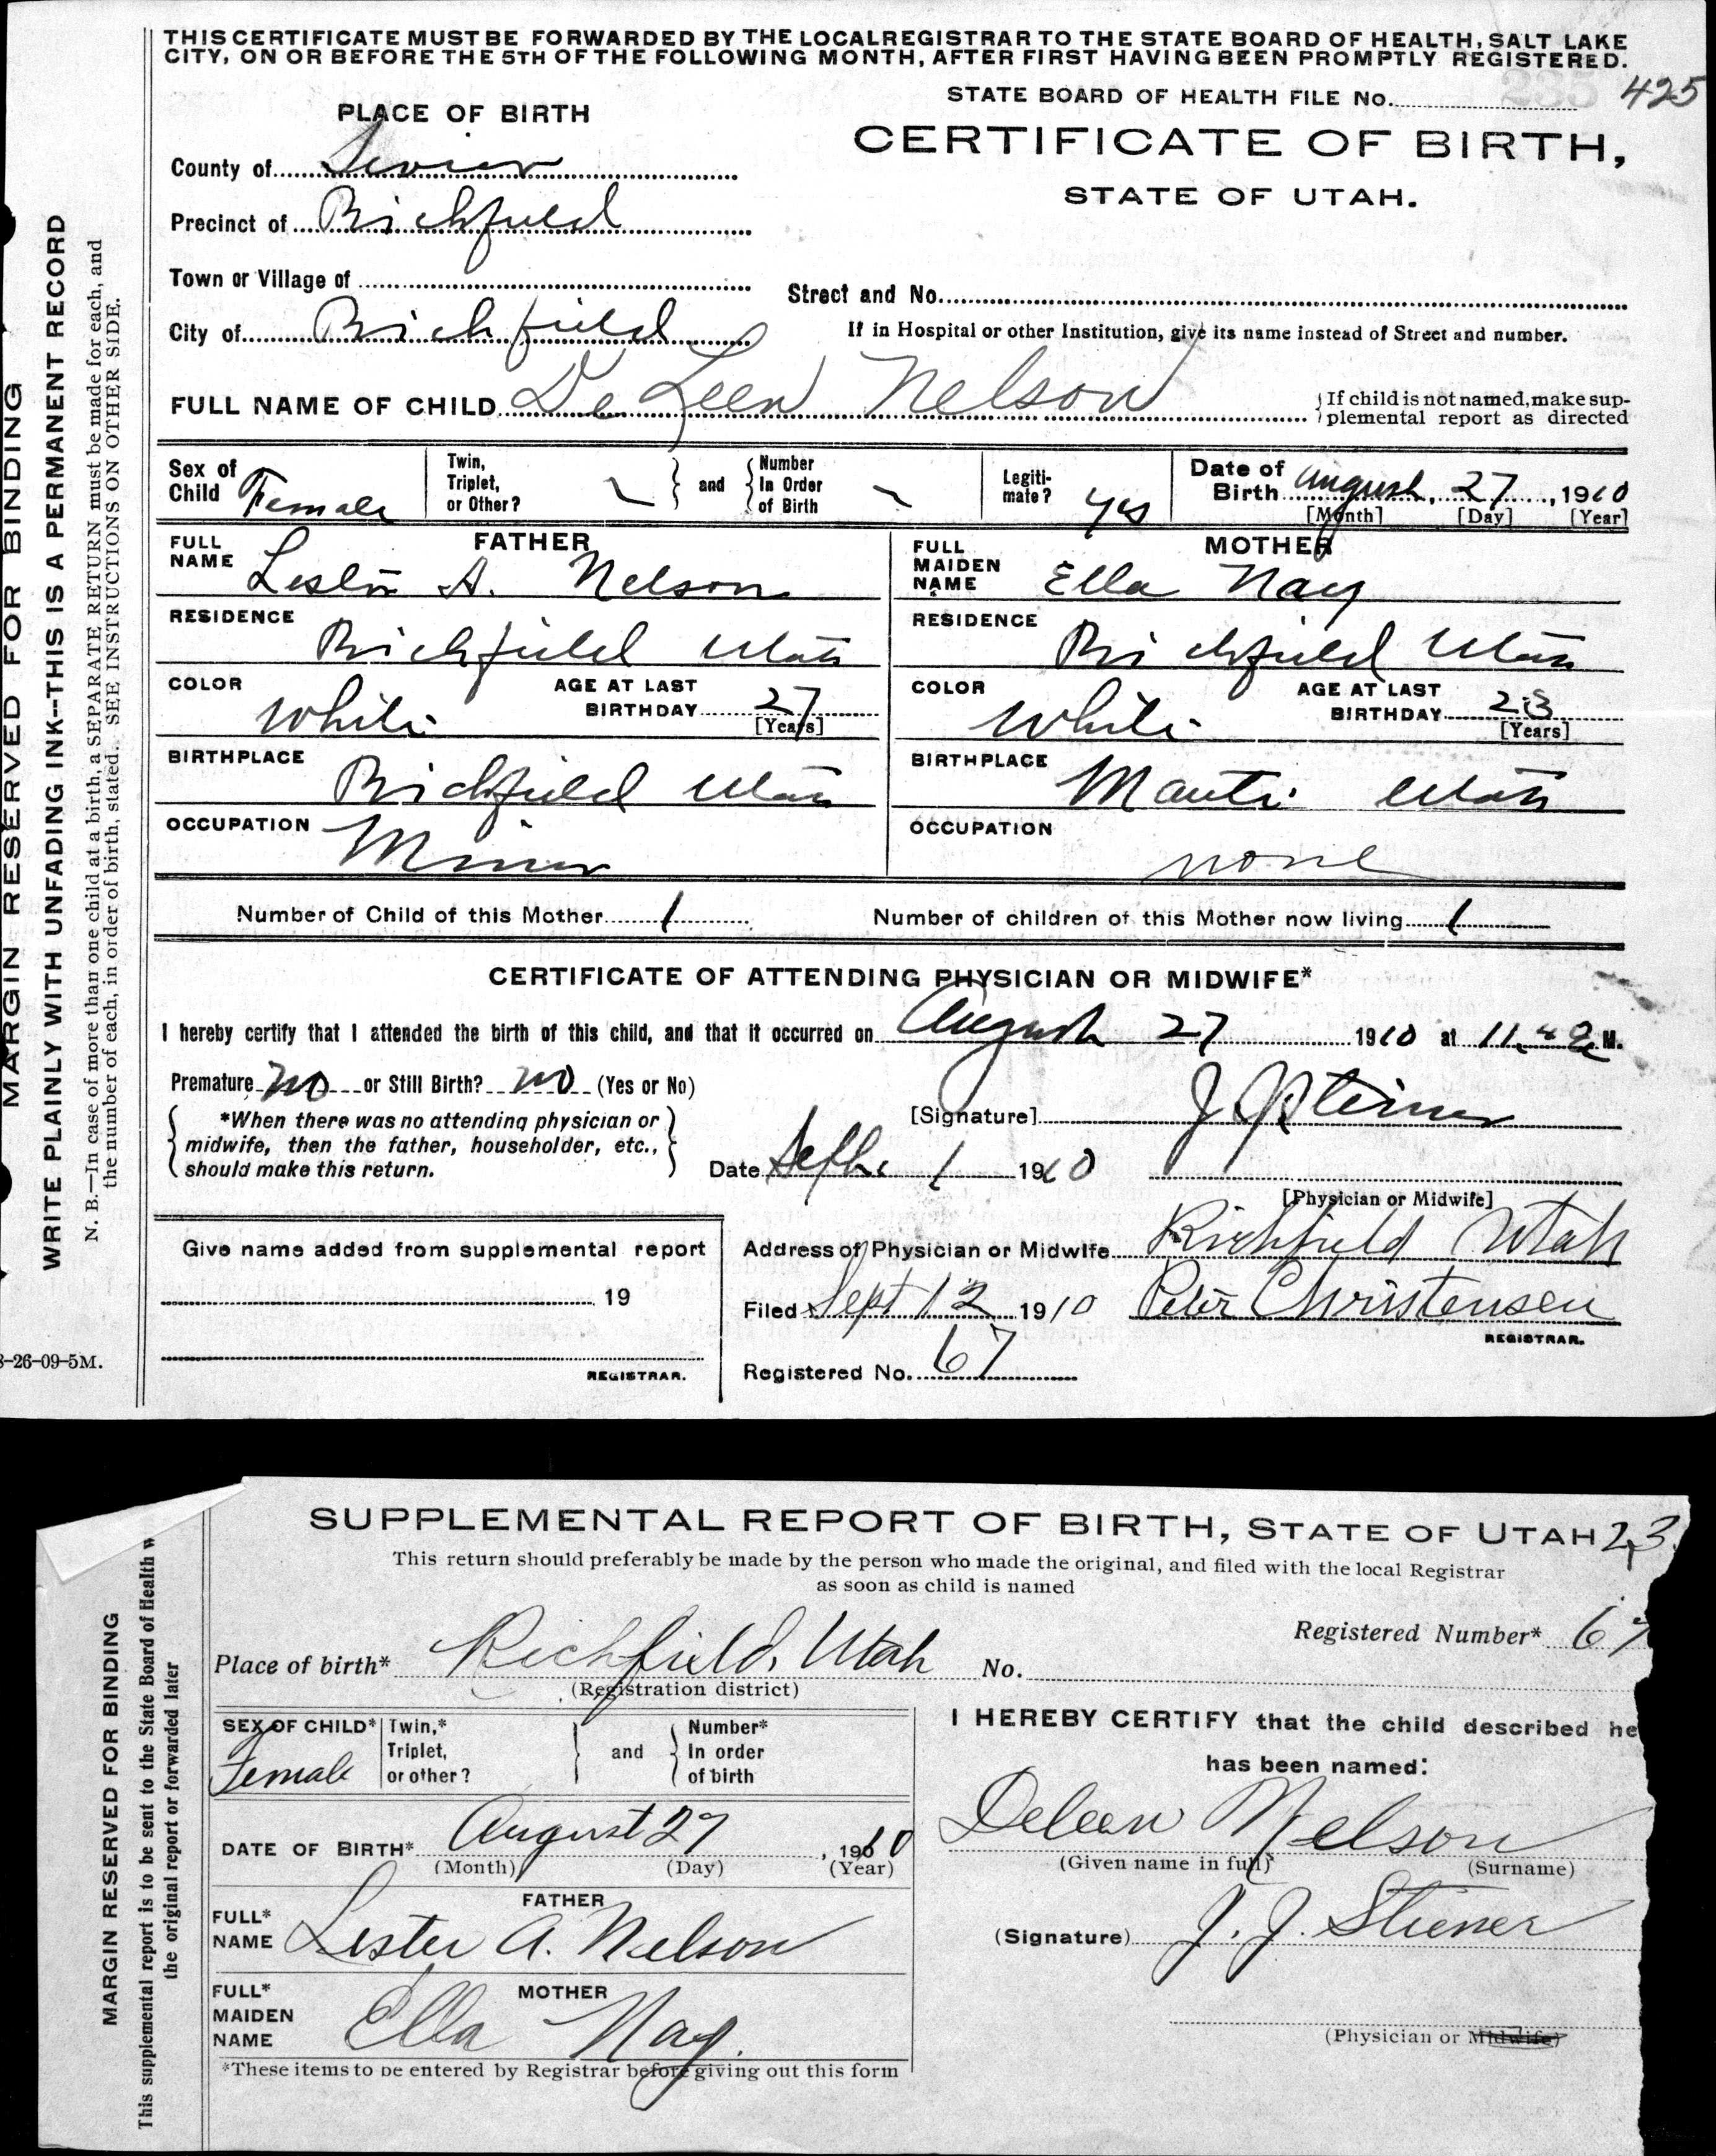 THIS CERTIFICATE MUST BE FORWARDED BY THE LOCAL REGISTRAR TO THE STATE BOARD OF HEALTH, SALT LAKE
CITY, ON OR BEFORE THE 5TH OF THE FOLLOWING MONTH, AFTER FIRST HAVING BEEN PROMPTLY REGISTERED.
STATE BOARD OF HEALTH FILE No. 425
PLACE OF BIRTH
CERTIFICATE OF BIRTH,
STATE OF UTAH.
County of Sevier
Precinct of Richfield
Town or Village of
Street and No.
City of Richfield
If in Hospital or other Institution, give its name instead of Street and number.
FULL NAME OF CHILD De Leen Nelson
If child is not named, make sup-
plemental report as directed
Sex of Child Female
Twin, Triplet, or Other?
and
Number In Order of Birth
Legiti-mate? yes
Date of Birth August, 27, 1910
[Month] [Day] [Year]
FATHER
FULL NAME Lester A. Nelson
RESIDENCE Richfield Utah
COLOR White
AGE AT LAST BIRTHDAY 27
[Years]
BIRTHPLACE Richfield Utah
OCCUPATION Miner
MOTHER
FULL MAIDEN NAME Ella Nay
RESIDENCE Richfield Utah
COLOR White
AGE AT LAST BIRTHDAY 23
[Years]
BIRTHPLACE Manti Utah
OCCUPATION none
Number of Child of this Mother 1
Number of children of this Mother now living 1
CERTIFICATE OF ATTENDING PHYSICIAN OR MIDWIFE*
I hereby certify that I attended the birth of this child, and that it occurred on August 27 1910 at 11 M.
Premature no or Still Birth? no (Yes or No)
*When there was no attending physician or
midwife, then the father, householder, etc.,
should make this return.
[Signature] J J Steiner
Date Sept. 1 1910
[Physician or Midwife]
Give name added from supplemental report
19
REGISTRAR.
Address of Physician or Midwife Richfield Utah
Filed Sept 12 1910 Peter Christensen
REGISTRAR.
Registered No. 67
MARGIN RESERVED FOR BINDING
WRITE PLAINLY WITH UNFADING INK--THIS IS A PERMANENT RECORD
N. B.—In case of more than one child at a birth, a SEPARATE RETURN must be made for each, and
the number of each, in order of birth, stated. SEE INSTRUCTIONS ON OTHER SIDE.
8-26-09-5M.
SUPPLEMENTAL REPORT OF BIRTH, STATE OF UTAH
This return should preferably be made by the person who made the original, and filed with the local Registrar
as soon as child is named
Registered Number* 67
Place of birth* Richfield, Utah No.
(Registration district)
SEX OF CHILD* Female
Twin,* Triplet, or other?
and
Number* In order of birth
DATE OF BIRTH* August 27, 1910
(Month) (Day) (Year)
FATHER
FULL* NAME Lester A. Nelson
MOTHER
FULL* MAIDEN NAME Ella Nay.
*These items to be entered by Registrar before giving out this form
I HEREBY CERTIFY that the child described he
has been named:
Deleen Nelson
(Given name in full) (Surname)
(Signature) J. J. Stiener
(Physician or Midwife)
MARGIN RESERVED FOR BINDING
This supplemental report is to be sent to the State Board of Health w
the original report or forwarded later